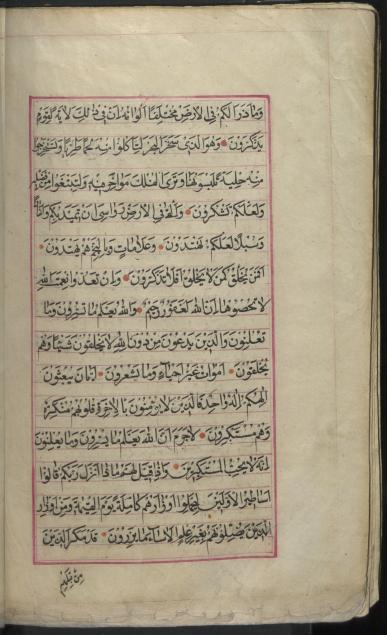 وما ذرا لكم في الارض مختلفا الوانه ان في ذلك لاية لقوم
يذكرون وهو الذي سخر البحر لتاكلوا منه لحما طريا وتستخرجوا
منه حلية تلبسونها وترى الفلك مواخر فيه ولتبتغوا من فضله
ولعلكم تشكرون والقى في الارض رواسي ان تميد بكم وانهارا
وسبلا لعلكم تهتدون وعلامات وبالنجم هم يهتدون
افمن يخلق كمن لا يخلق افلا تذكرون وان تعدوا نعمة الله
لا تحصوها ان الله لغفور رحيم والله يعلم ما تسرون وما
تعلنون والذين يدعون من دون الله لا يخلقون شيئا وهم
يخلقون اموات غير احياء وما يشعرون ايان يبعثون
الهكم اله واحد فالذين لا يؤمنون بالاخرة قلوبهم منكرة
وهم مستكبرون لا جرم ان الله يعلم ما يسرون وما يعلنون
انه لا يحب المستكبرين واذا قيل لهم ماذا انزل ربكم قالوا
اساطير الاولين ليحملوا اوزارهم كاملة يوم القيمة ومن اوزار
الذين يضلونهم بغير علم الا ساء ما يزرون قد مكر الذين
من قبلهم